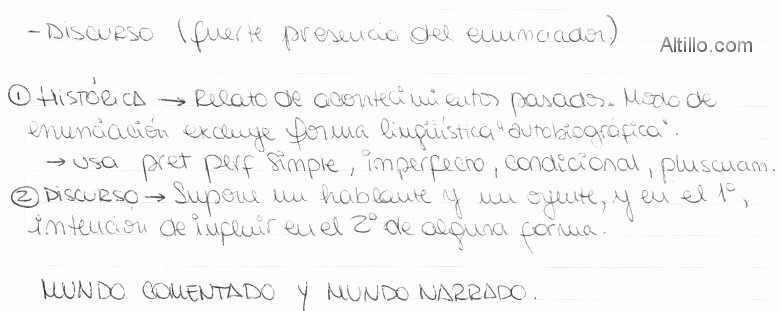 - DISCURSO (fuerte presencia del enunciador)
Altillo.com
① HISTÓRICA → Relato de acontecimientos pasados. Modo de
enunciación excluye forma lingüística "autobiográfica".
→ usa pret perf simple, imperfecto, condicional, pluscuam.
② DISCURSO → Supone un hablante y un oyente, y en el 1º,
intención de influir en el 2º de alguna forma.
MUNDO COMENTADO Y MUNDO NARRADO.